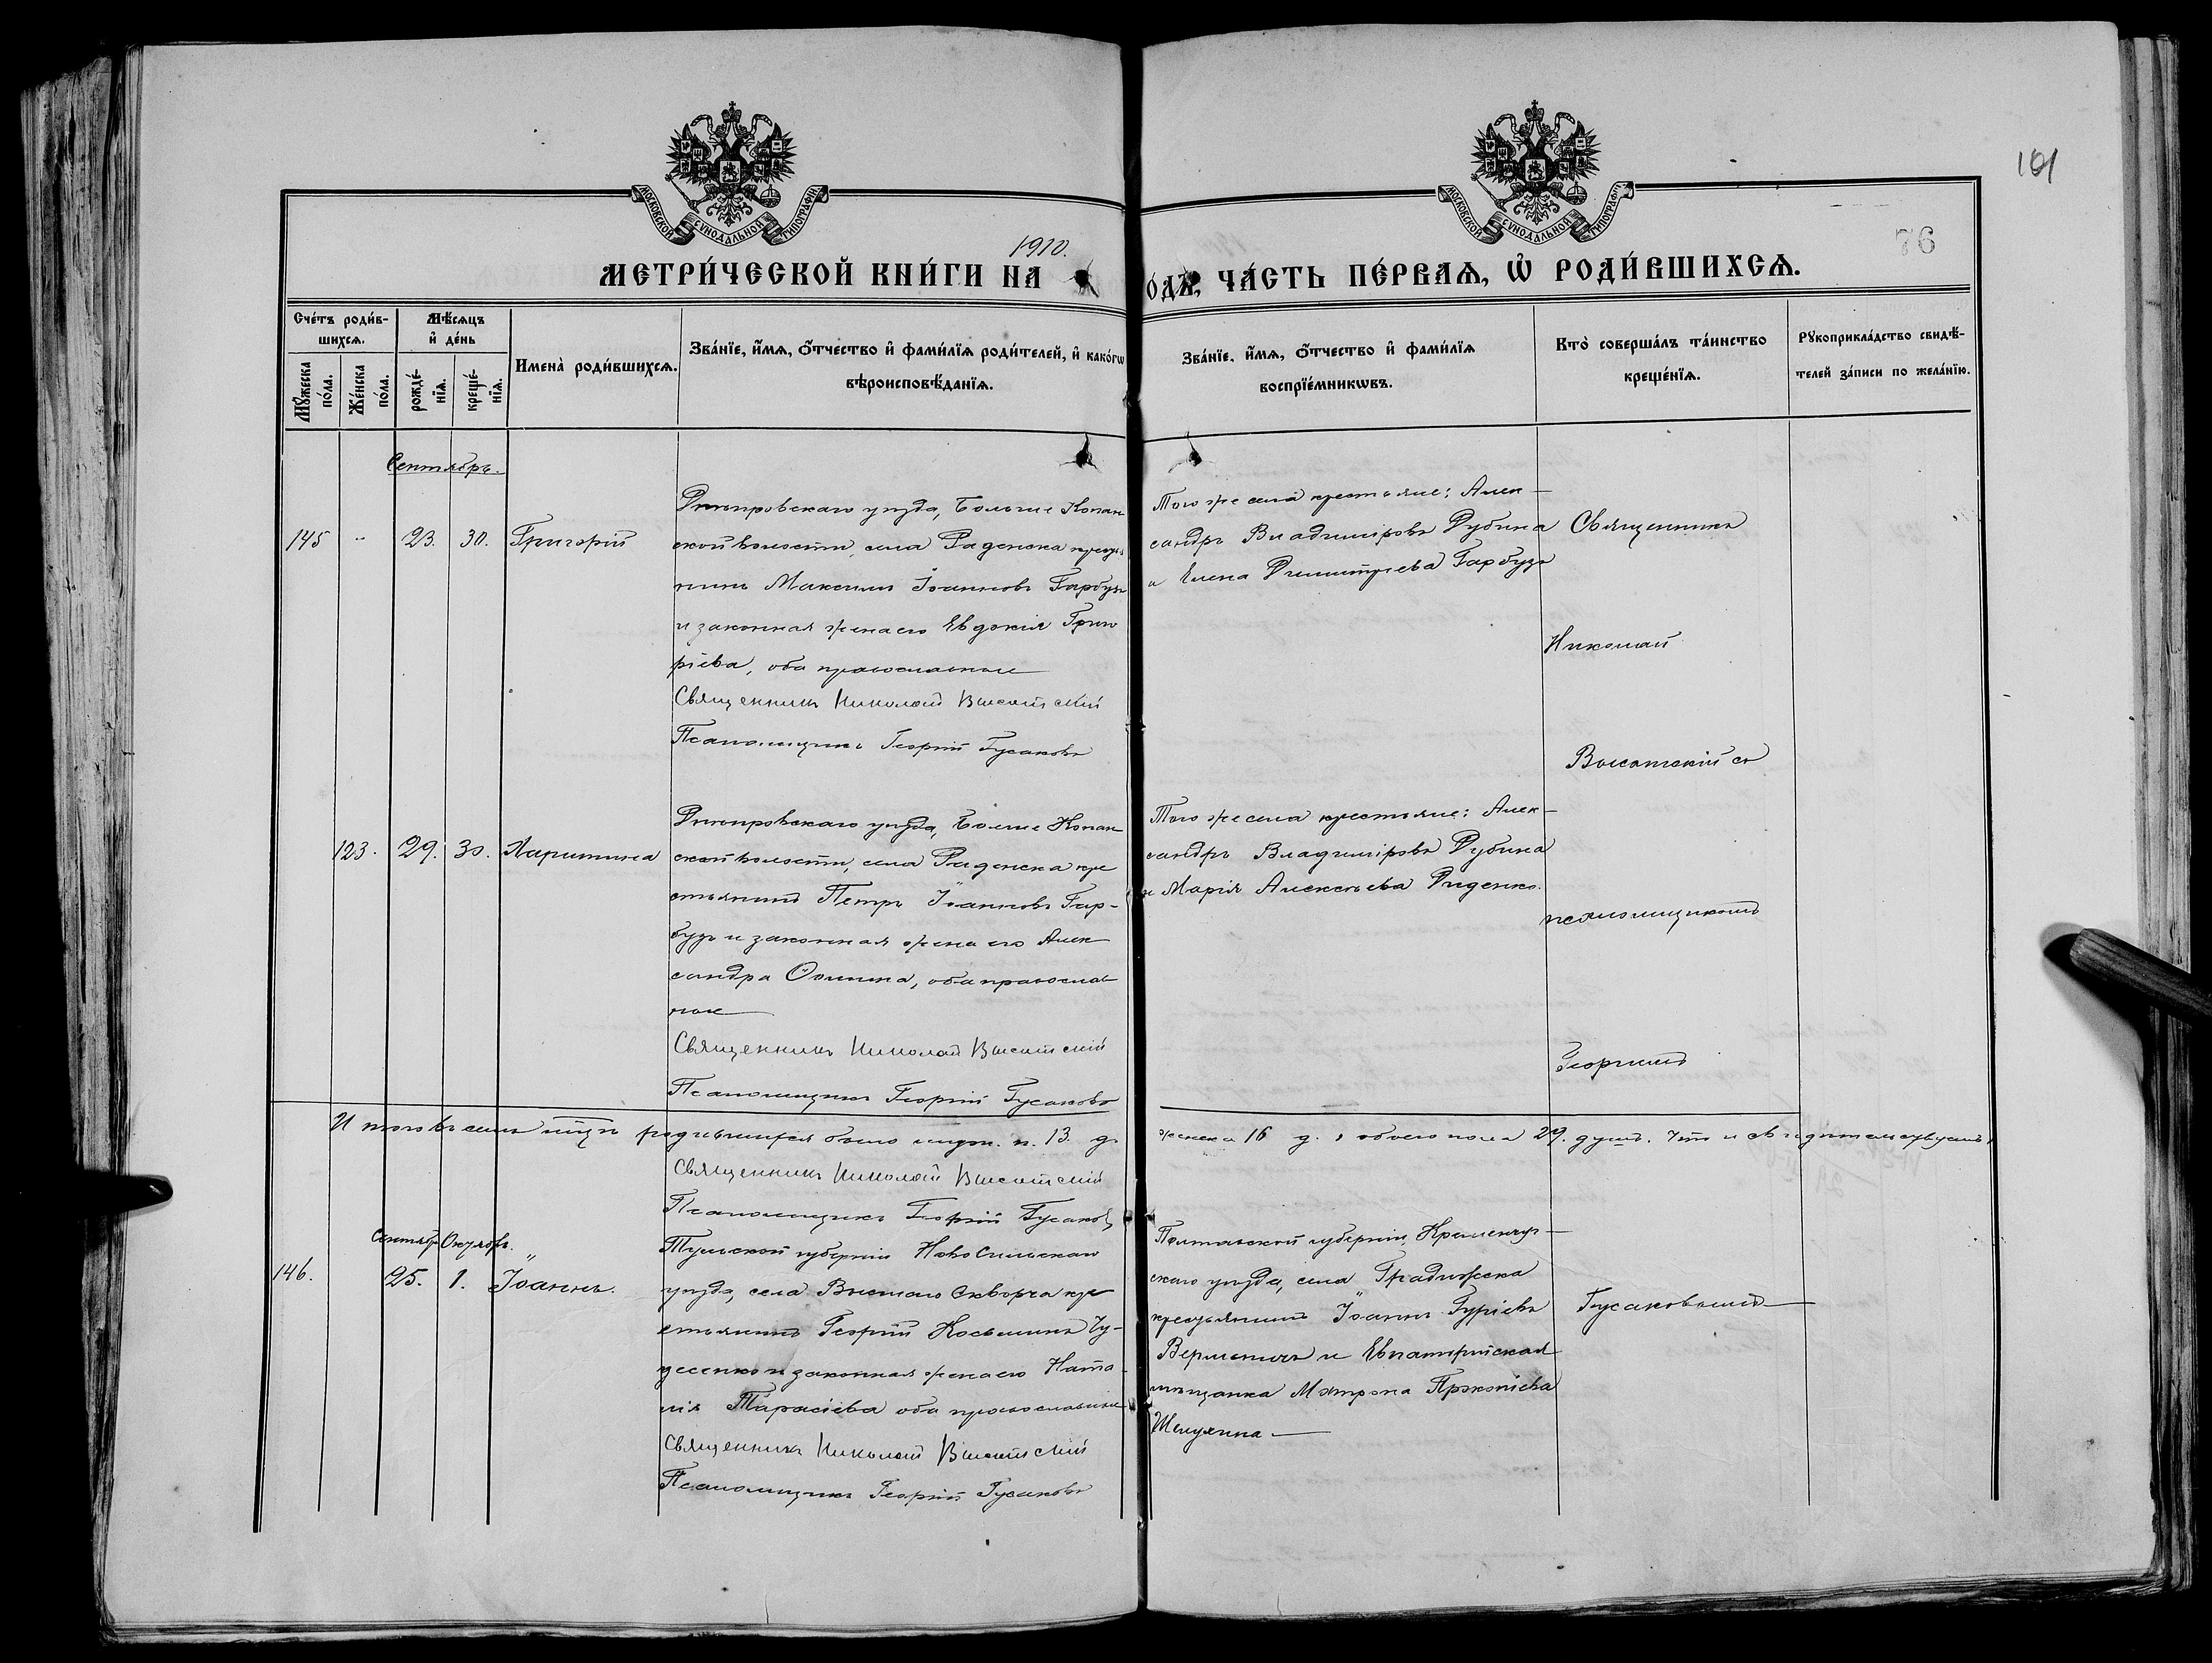 101
МОСКОВСКОЙ СѴНОДАЛЬНОЙ ТИПОГРАФІИ
МОСКОВСКОЙ СѴНОДАЛЬНОЙ ТИПОГРАФІИ
1910.
76
МЕТРИ́ЧЕСКОЙ КНИ́ГИ НА
ОДЪ, ЧА́СТЬ ПЕ́РВАѦ, Ѽ РОДИ́ВШИХСѦ.
Сче́тъ роди́в-
шихсѧ.
Мѣ́сѧцъ
и҆ де́нь
Мꙋ́жеска
по́ла.
Же́нска
по́ла.
рожде́-
нїѧ.
креще́-
нїѧ.
Имена̀ роди́вшихсѧ.
Зва́нїе, и҆́мѧ, ѻ҆́тчество и҆ фами́лїѧ роди́телей, и҆ како́гѡ
вѣроисповѣ́данїѧ.
Зва́нїе, и҆́мѧ, ѻ҆́тчество и҆ фами́лїѧ
воспрїе́мникѡвъ.
Кто̀ соверша́лъ та́инство
креще́нїѧ.
Рꙋкоприкла́дство свидѣ́-
телей за́писи по жела́нїю.
Сентябрь.
145 " 23. 30. Григорій
Днѣпровскаго уѣзда, Больше Копан
ской волости села Раденска крестья
нинъ Максимъ Іоанновъ Гарбузъ
и законная жена его Евдокія Григо
ріева, оба православные
Священникъ Николай Высотскій
Псаломщикъ Георгій Гусаковъ
Того же села крестьяне: Алек-
сандръ Владиміровъ Дубина
и Елена Димитріева Гарбузъ
Священникъ
Николай
Высотскій съ
псаломщикомъ
Георгіемъ
Гусаковымъ
123. 29. 30. Харитина
Днѣпровскаго уѣзда, Больше Копан
ской волости, села Раденска кре
стьянинъ Петръ Іоанновъ Гар-
бузъ и законная жена его Алек
сандра Ѳомина, оба православ
ные
Священникъ Николай Высотскій
Псаломщикъ Георгій Гусаковъ
Того же села крестьяне: Алек-
сандръ Владиміровъ Дубина
и Марія Алексѣева Диденко.
Итого въ семъ мѣсяцѣ родившихся было муж. п. 13. д.
женска 16 д. а обоего пола 29. душъ. Что и свидѣтельствуемъ
Священникъ Николай Высотскій
Псаломщикъ Георгій Гусаковъ
Сентябр. Октябрь.
146. 25. 1. Іоаннъ.
Тульской губерніи Новосильскаго
уѣзда, села Вышняго Скворча кре
стьянинъ Георгій Косьминъ
и законная жена его Ната
лія Тарасіева оба православные
Священникъ Николай Высотскій
Псаломщикъ Георгій Гусаковъ
Полтавской губерніи, Кременчуг-
скаго уѣзда, села Градижска
крестьянинъ Іоаннъ Гуріевъ
и Евпаторійская
мѣщанка Матрона Прокопіева
Шелухина